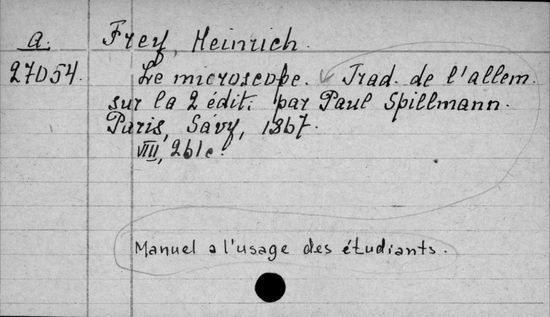 a. Frey, Heinrich.
27054. Le microscope. Trad. de l'allem.
sur la 2 édit. par Paul Spillmann.
Paris, Sávy, 1867.
VIII, 261c.
Manuel a l'usage des étudiants.